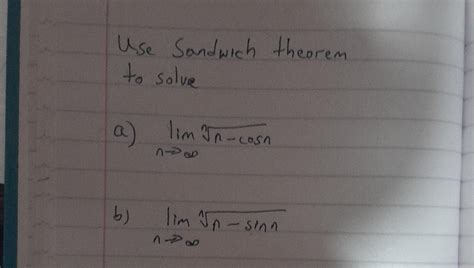 Use Sandwich theorem
to solve
a) lim ⁿ√(n-cosn)
n→∞
b) lim ⁿ√(n-sinn)
n→∞